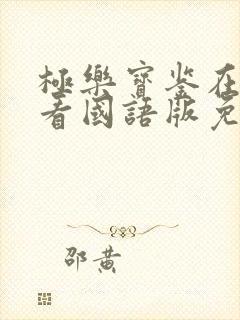 極樂寶鉴在
看國語版免
邵黄